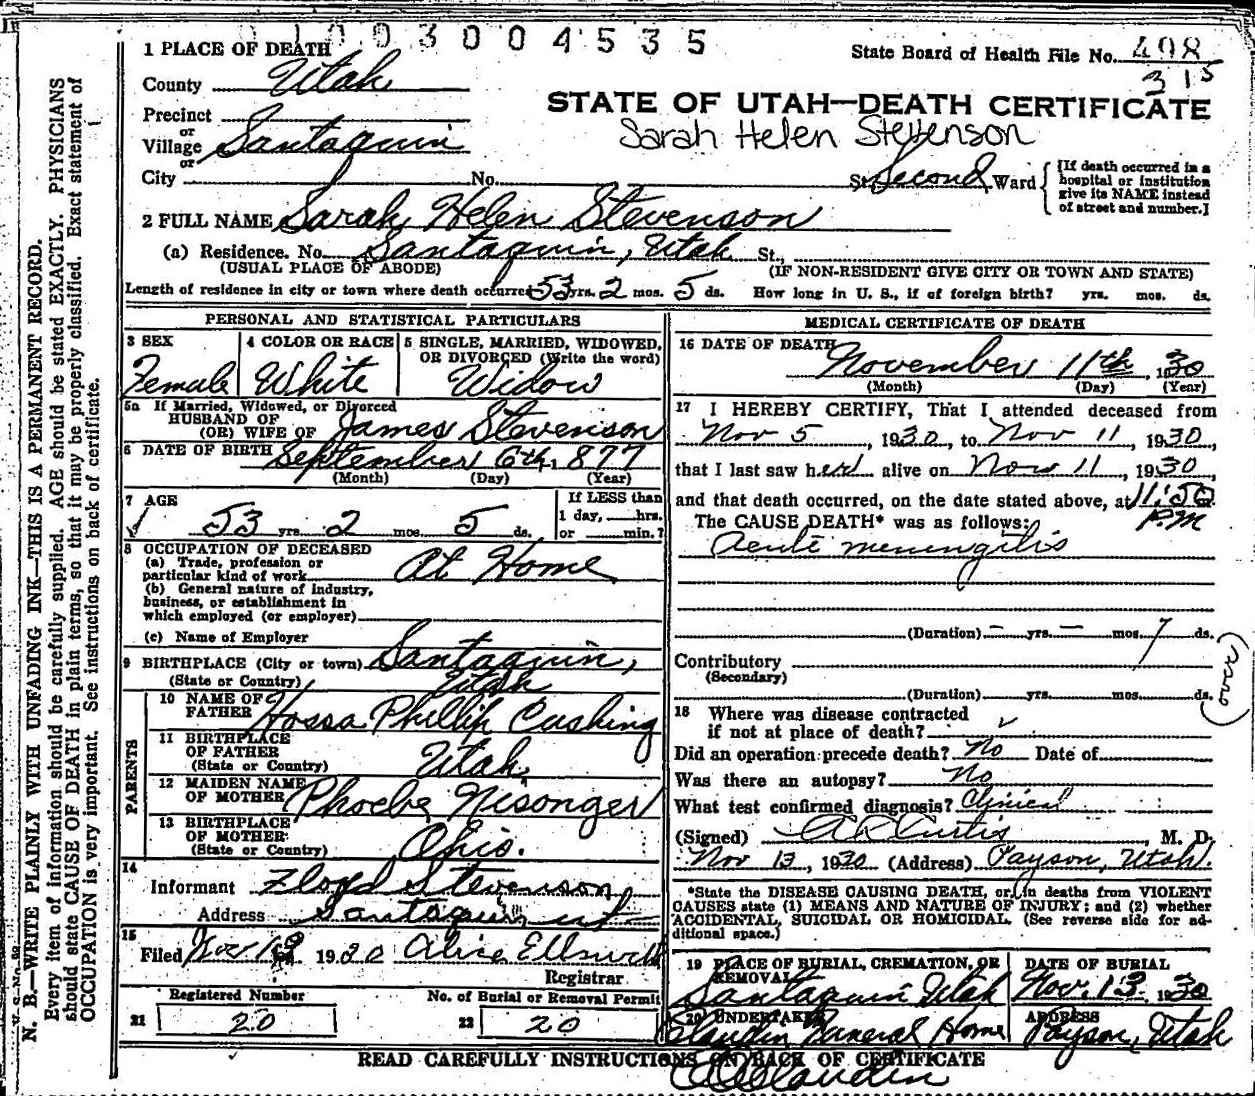 0 1 0 0 3 0 0 4 5 3 5
State Board of Health File No. 498
315
1 PLACE OF DEATH
County Utah
STATE OF UTAH—DEATH CERTIFICATE
Sarah Helen Stevenson
Precinct
or
Village Santaquin
or
City No. St. Second Ward
[If death occurred in a hospital or institution give its NAME instead of street and number.]
2 FULL NAME Sarah Helen Stevenson
(a) Residence. No. Santaquin, Utah St.,
(USUAL PLACE OF ABODE) (IF NON-RESIDENT GIVE CITY OR TOWN AND STATE)
Length of residence in city or town where death occurred 53 yrs. 2 mos. 5 ds. How long in U. S., if of foreign birth? yrs. mos. ds.
PERSONAL AND STATISTICAL PARTICULARS
3 SEX
Female
4 COLOR OR RACE
White
5 SINGLE, MARRIED, WIDOWED,
OR DIVORCED (Write the word)
Widow
5a If Married, Widowed, or Divorced
HUSBAND OF
(OR) WIFE OF James Stevenson
6 DATE OF BIRTH September 6th, 1877
(Month) (Day) (Year)
7 AGE
53 yrs. 2 mos. 5 ds.
If LESS than
1 day, hrs.
or min.?
8 OCCUPATION OF DECEASED
(a) Trade, profession or
particular kind of work At Home
(b) General nature of industry,
business, or establishment in
which employed (or employer)
(c) Name of Employer
9 BIRTHPLACE (City or town) Santaquin,
(State or Country) Utah
PARENTS
10 NAME OF
FATHER Hossa Phillip Cushing
11 BIRTHPLACE
OF FATHER
(State or Country) Utah
12 MAIDEN NAME
OF MOTHER Phoebe Nisonger
13 BIRTHPLACE
OF MOTHER
(State or Country) Ohio.
14
Informant Floyd Stevenson
Address Santaquin ut
15
Filed 1930 Alice
Registrar
Registered Number
21 20
No. of Burial or Removal Permit
22 20
MEDICAL CERTIFICATE OF DEATH
16 DATE OF DEATH
November 11th, 1930
(Month) (Day) (Year)
17 I HEREBY CERTIFY, That I attended deceased from
Nov 5, 1930, to Nov 11, 1930,
that I last saw her alive on Nov 11, 1930
and that death occurred, on the date stated above, at 11:50
P.M
The CAUSE DEATH* was as follows:
Acute meningitis
(Duration) — yrs. — mos. 7 ds.
Contributory
(Secondary)
(Duration) yrs. mos. ds.
(over)
18 Where was disease contracted
if not at place of death?
Did an operation precede death? No Date of
Was there an autopsy? No
What test confirmed diagnosis? Clinical
(Signed) A R Curtis, M. D.
Nov 13, 1930 (Address) Payson, Utah.
*State the DISEASE CAUSING DEATH, or, in deaths from VIOLENT
CAUSES state (1) MEANS AND NATURE OF INJURY; and (2) whether
ACCIDENTAL, SUICIDAL OR HOMICIDAL. (See reverse side for ad-
ditional space.)
19 PLACE OF BURIAL, CREMATION, OR
REMOVAL
Santaquin Utah
DATE OF BURIAL
Nov. 13 1930
20 UNDERTAKER
Claudin Funeral Home
ADDRESS
Payson, Utah
READ CAREFULLY INSTRUCTIONS ON BACK OF CERTIFICATE
Claudin
N. B.—WRITE PLAINLY WITH UNFADING INK—THIS IS A PERMANENT RECORD.
Every item of information should be carefully supplied. AGE should be stated EXACTLY. PHYSICIANS
should state CAUSE OF DEATH in plain terms, so that it may be properly classified. Exact statement of
OCCUPATION is very important. See instructions on back of certificate.